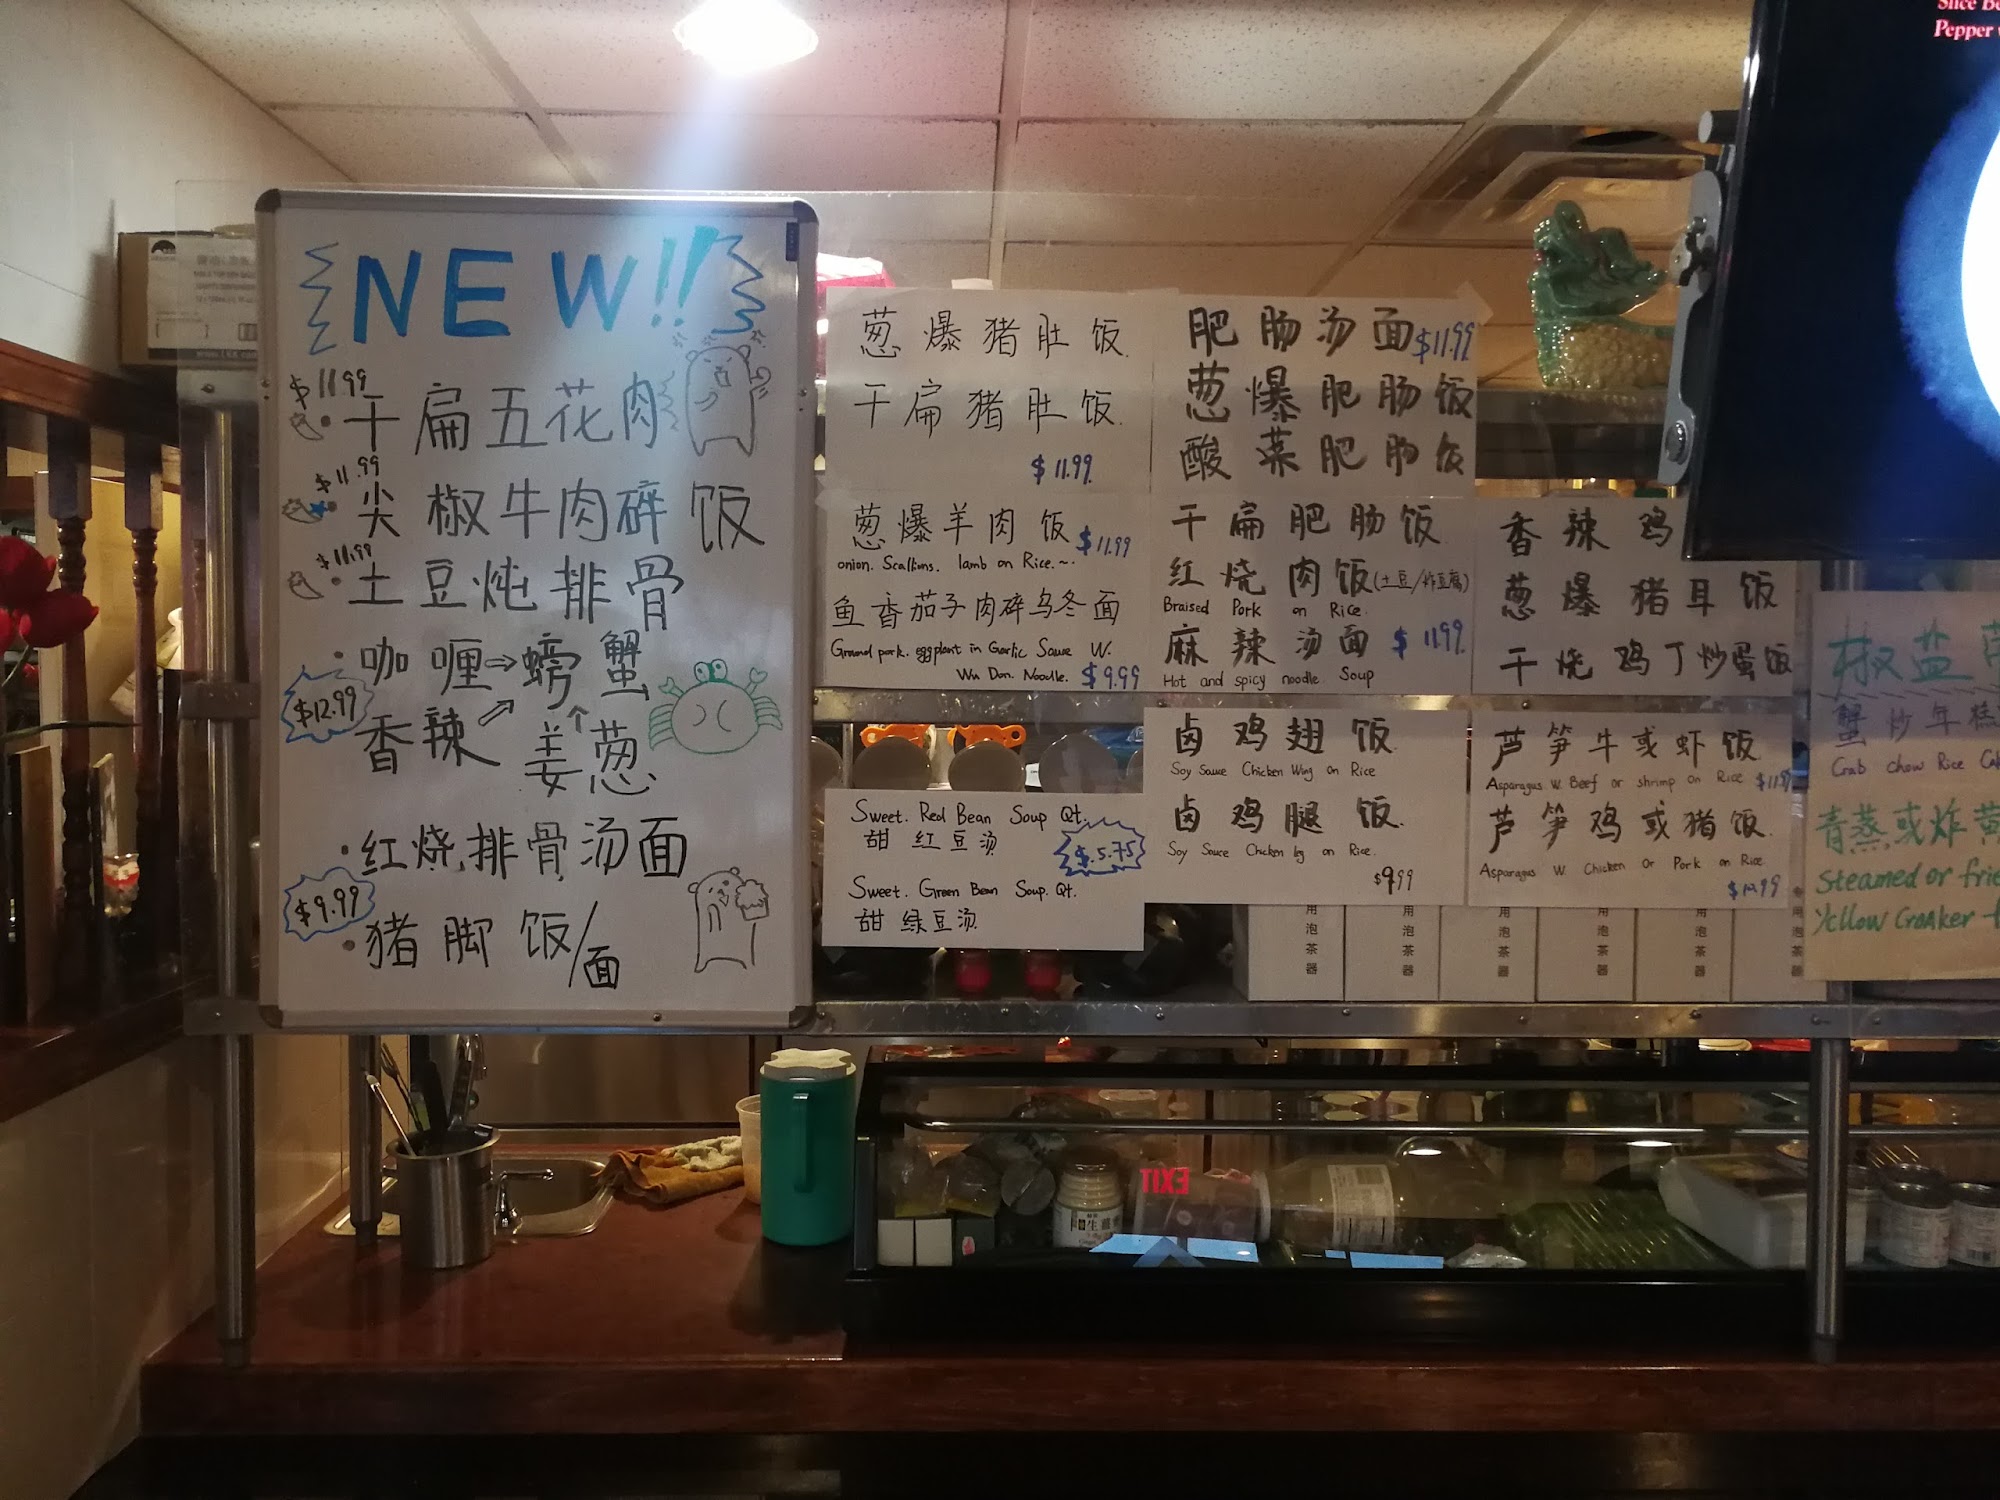 NEW!!
$11.99
干扁五花肉
$11.99
尖椒牛肉碎饭
$11.99
土豆炖排骨
咖喱⇒螃蟹
$12.99
香辣 姜葱
红烧排骨汤面
$9.99
猪脚饭/面
葱爆猪肚饭
干扁猪肚饭
$11.99
葱爆羊肉饭 $11.99
onion. Scallions. lamb on Rice.~
鱼香茄子肉碎乌冬面
Ground pork. eggplant in Garlic Sauce W.
Wu Don. Noodle. $9.99
Sweet. Red Bean Soup Qt.
甜红豆汤
$5.75
Sweet. Green Bean Soup. Qt.
甜绿豆汤
肥肠汤面 $11.99
葱爆肥肠饭
酸菜肥肠饭
干扁肥肠饭
红烧肉饭(土豆/炸豆腐)
Braised Pork on Rice.
麻辣汤面 $11.99
Hot and spicy noodle Soup
卤鸡翅饭
Soy Sauce Chicken Wing on Rice
卤鸡腿饭
Soy Sauce Chicken leg on Rice.
$9.99
香辣鸡
葱爆猪耳饭
干烧鸡丁炒蛋饭
芦笋牛或虾饭
Asparagus w. Beef or shrimp on Rice $11.99
芦笋鸡或猪饭
Asparagus W. Chicken Or Pork on Rice.
椒盐
蟹炒年糕
Crab chow Rice
青蒸或炸黄
Steamed or
Yellow Croaker
用泡茶器
用泡茶器
用泡茶器
用泡茶器
用泡茶器
专用泡茶器
Pepper
EXIT